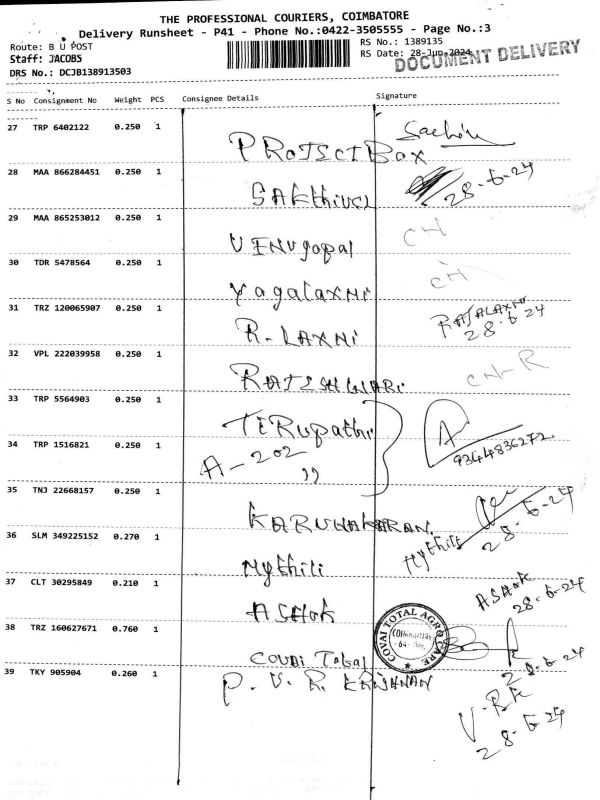 THE PROFESSIONAL COURIERS, COIMBATORE
Delivery Runsheet - P41 - Phone No.:0422-3505555 - Page No.:3
Route: B U POST
RS No.: 1389135
Staff: JACOBS
RS Date: 28-Jun-2024
DOCUMENT DELIVERY
DRS No.: DCJB138913503
S No Consignment No Weight PCS Consignee Details Signature
27 TRP 6402122 0.250 1 PROJECT BOX Sachin
28 MAA 866284451 0.250 1 SAKthivel 28-6-24
29 MAA 865253012 0.250 1 VENUgopal CH
30 TDR 5478564 0.250 1 YogaLaxmi CH
31 TRZ 120065907 0.250 1 R. LAXMI RAJALAXMI
28-6-24
32 VPL 222039958 0.250 1 RAJESHWARI CH-R
33 TRP 5564903 0.250 1 TIRUpathi A
34 TRP 1516821 0.250 1 A-202 ,, 9344836272
35 TNJ 22668157 0.250 1 KARUNAKARAN 28-6-24
36 SLM 349225152 0.270 1 Mythili Mythili
37 CLT 30295849 0.210 1 ASHok ASHok
28-6-24
38 TRZ 160627671 0.760 1 COVAI Total COVAI TOTAL AGRO CARE
28-6-24
39 TKY 905904 0.260 1 P. V. R. KRISHNAN V-RK
28-6-24